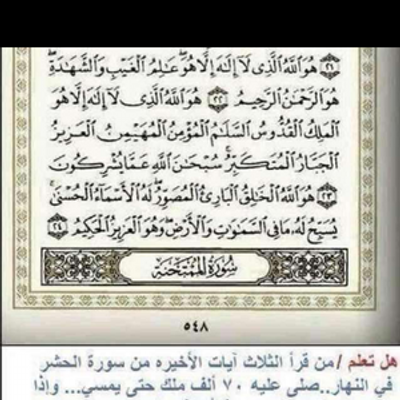 ﴿٢١﴾ هُوَ ٱللَّهُ ٱلَّذِى لَآ إِلَٰهَ إِلَّا هُوَ ۖ عَٰلِمُ ٱلْغَيْبِ وَٱلشَّهَٰدَةِ ۖ
هُوَ ٱلرَّحْمَٰنُ ٱلرَّحِيمُ ﴿٢٢﴾ هُوَ ٱللَّهُ ٱلَّذِى لَآ إِلَٰهَ إِلَّا هُوَ
ٱلْمَلِكُ ٱلْقُدُّوسُ ٱلسَّلَٰمُ ٱلْمُؤْمِنُ ٱلْمُهَيْمِنُ ٱلْعَزِيزُ
ٱلْجَبَّارُ ٱلْمُتَكَبِّرُ ۚ سُبْحَٰنَ ٱللَّهِ عَمَّا يُشْرِكُونَ
﴿٢٣﴾ هُوَ ٱللَّهُ ٱلْخَٰلِقُ ٱلْبَارِئُ ٱلْمُصَوِّرُ ۖ لَهُ ٱلْأَسْمَآءُ ٱلْحُسْنَىٰ ۚ
يُسَبِّحُ لَهُۥ مَا فِى ٱلسَّمَٰوَٰتِ وَٱلْأَرْضِ ۖ وَهُوَ ٱلْعَزِيزُ ٱلْحَكِيمُ ﴿٢٤﴾
سُورَةُ المُمْتَحَنَةِ
٥٤٨
هل تعلم /من قرأ الثلاث آيات الأخيره من سورة الحشر
في النهار..صلى عليه ٧٠ ألف ملك حتى يمسي... وإذا